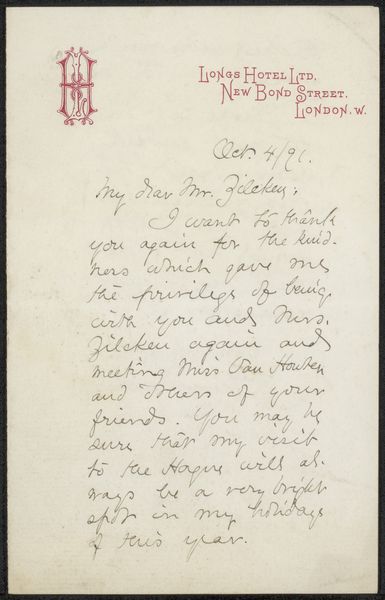 LONGS HOTEL LTD.
NEW BOND STREET.
LONDON. W.
Oct. 4/91.
My dear Mr. Zilcken:
I want to thank
you again for the kind-
ness which gave me
the privilege of being
with you and Mrs.
Zilcken again and
meeting Miss Van Houten
and others of your
friends. You may be
sure that my visit
to the Hague will al-
ways be a very bright
spot in my holidays
of this year.